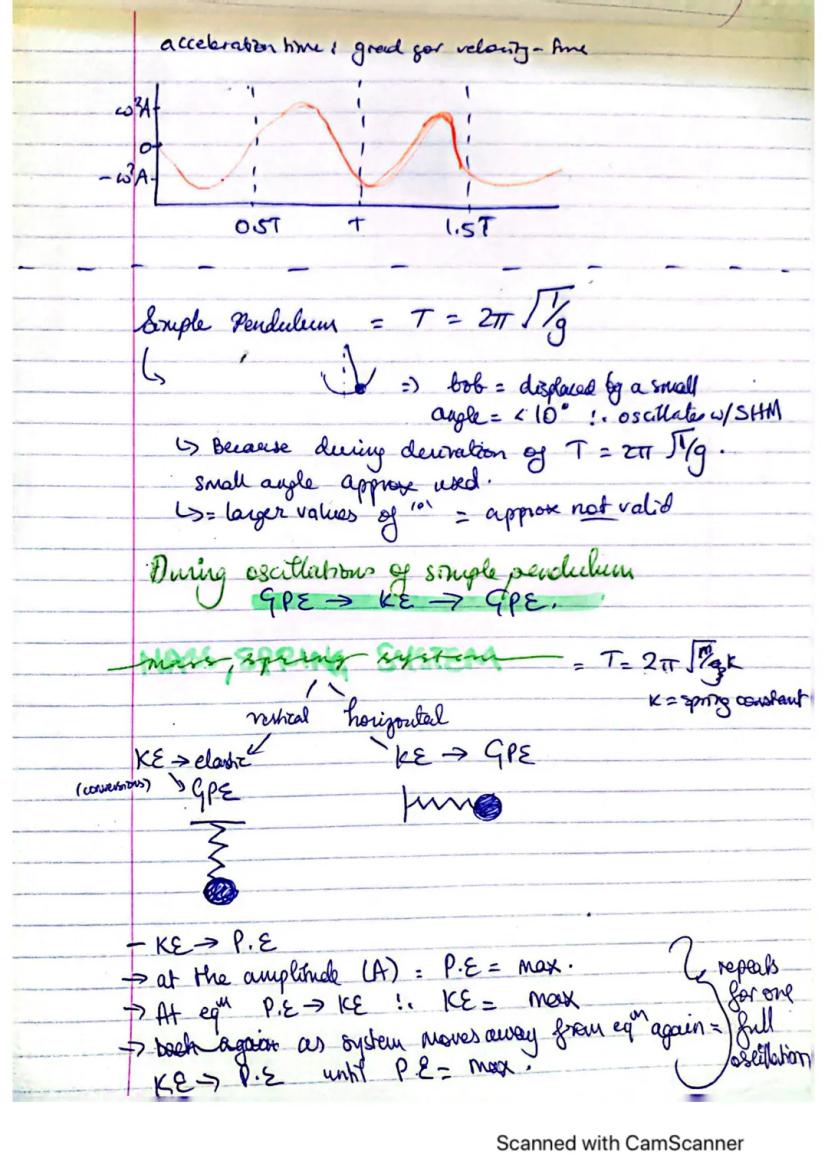 acceleration time : grad for velocity-time
ω²A
0
-ω²A
0.5T T 1.5T
Simple Pendulum = T = 2π √l/g
=) bob = displaced by a small
angle = < 10° !. oscillates w/ SHM
↳ Because during derivation of T = 2π √l/g .
small angle approx used.
↳ = larger values of "θ" = approx not valid
During oscillations of simple pendulum
GPE → KE → GPE.
MASS, SPRING SYSTEM = T = 2π √m/k
K = spring constant
vertical horizontal
KE → elastic KE → GPE
(conversions) ↘ GPE
- KE → P.E
→ at the amplitude (A) = P.E = max.
→ At eqᵐ P.E → KE !. KE = max
→ back again as system moves away from eqᵐ again =
KE → P.E until P.E = max.
repeats
for one
full
oscillation
Scanned with CamScanner